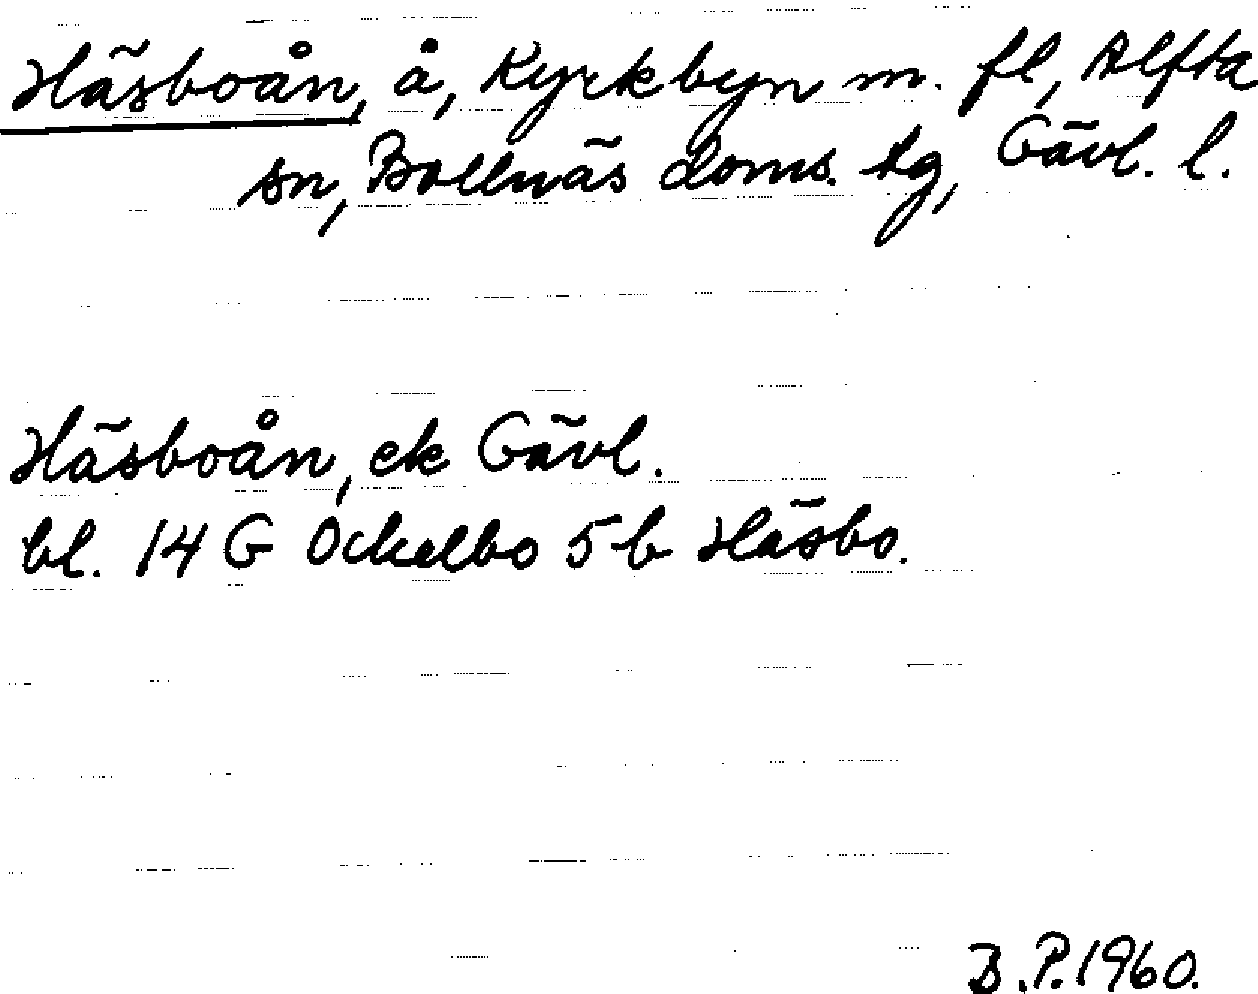 Häsboån, å, Kyrkbyn m. fl, Alfta
sn, Bollnäs doms. tg, Gävl. l.
Häsboån, ek Gävl.
bl. 14 G Ockelbo 5 b Häsbo.
B.P. 1960.